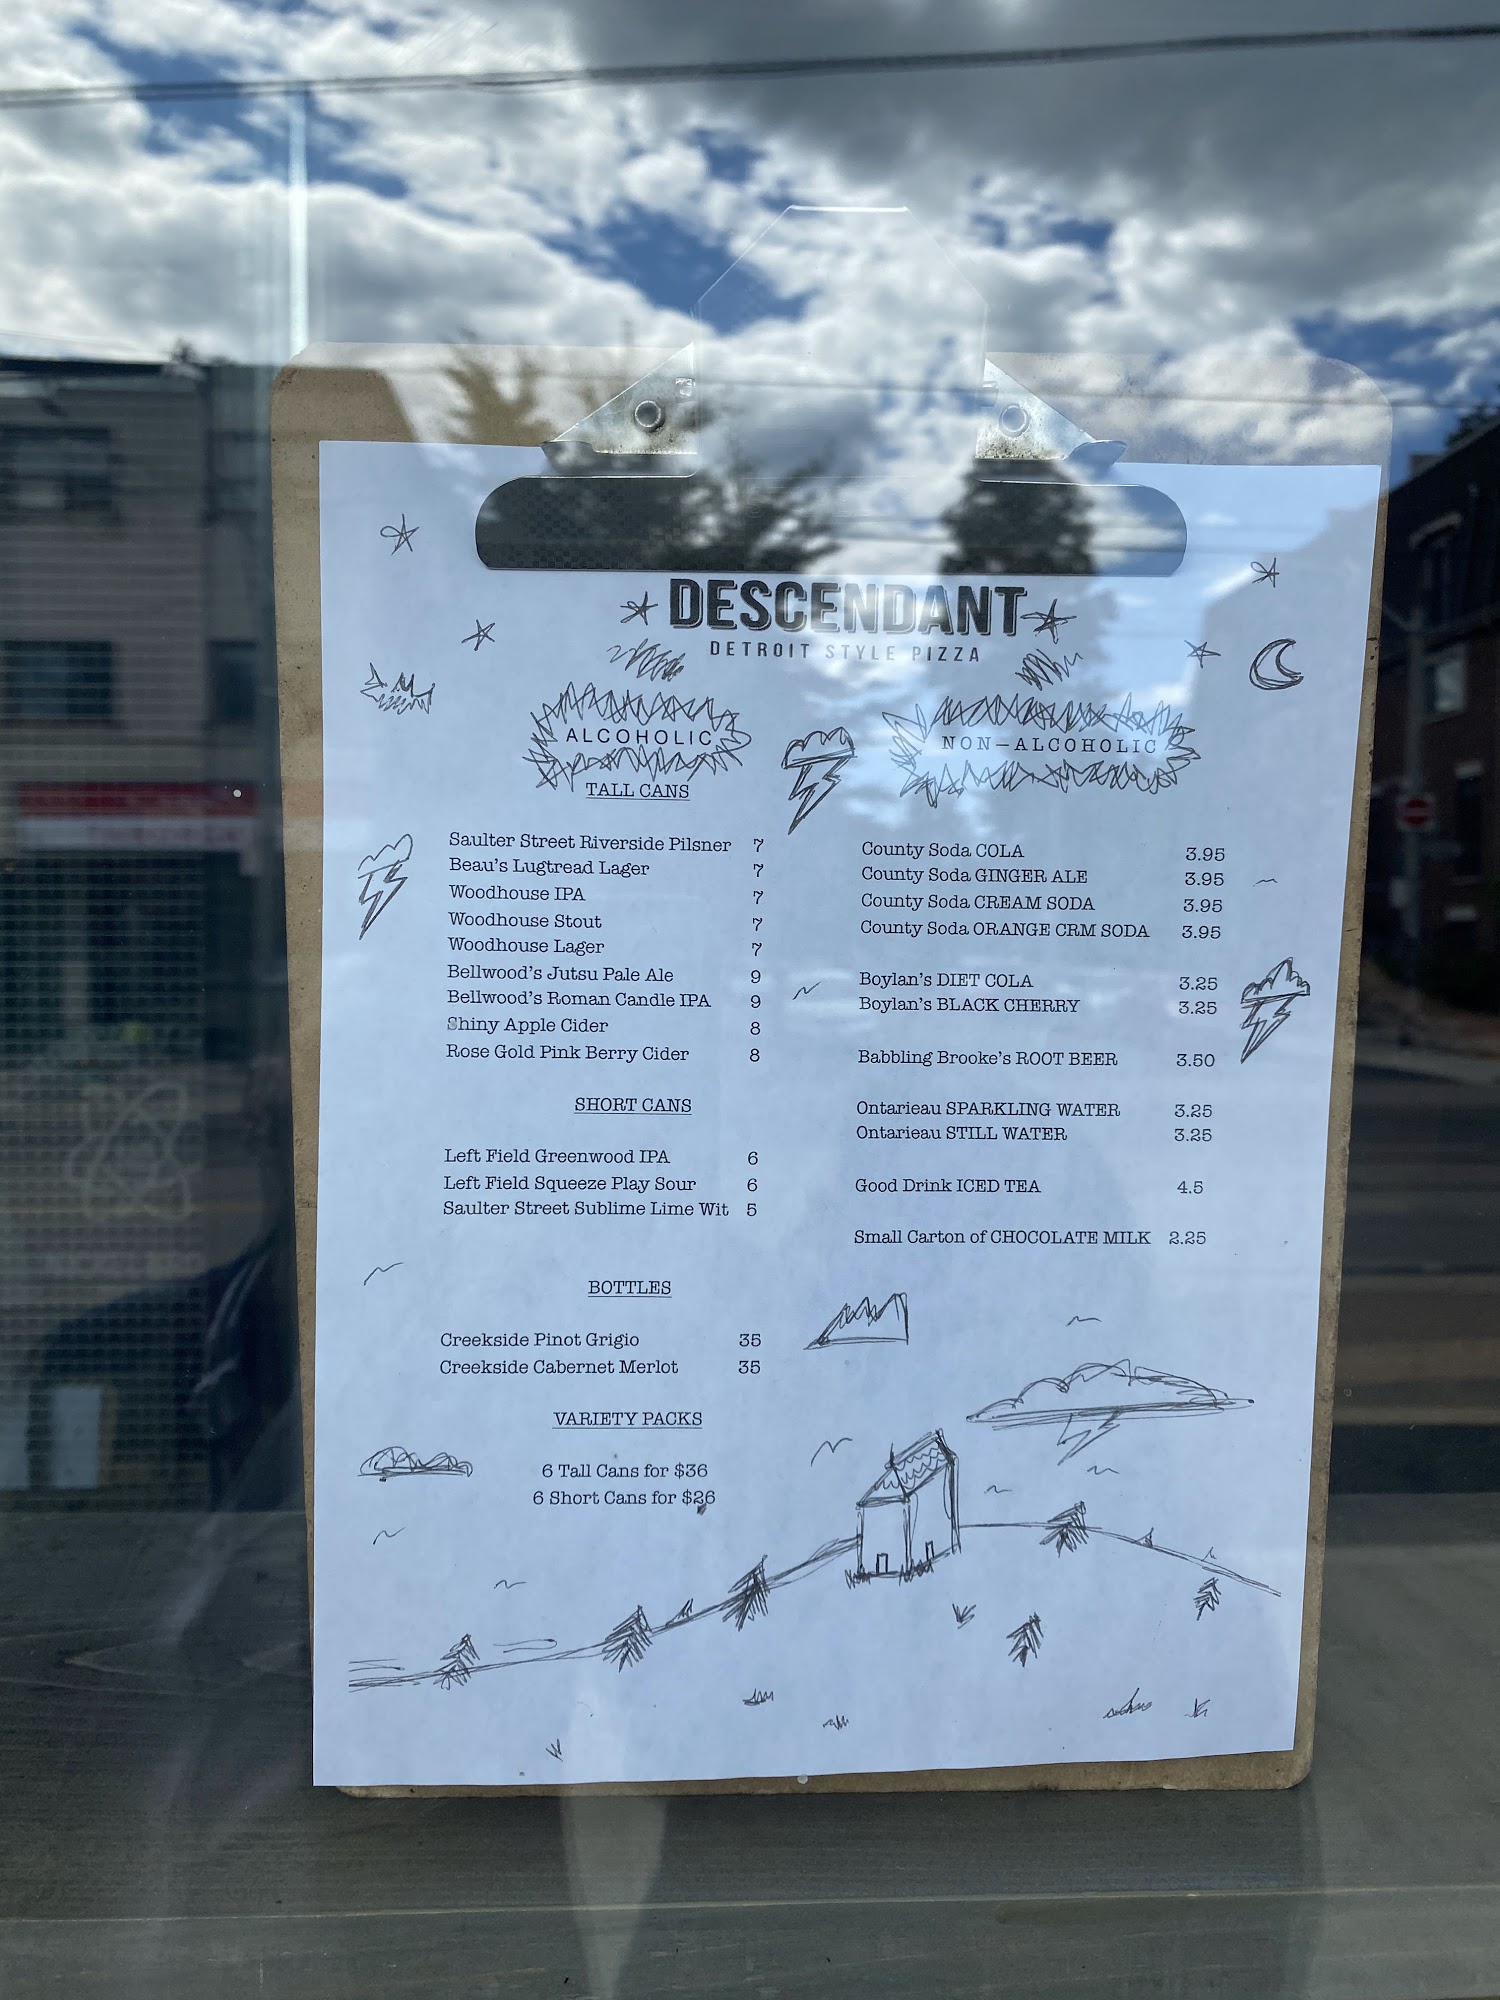 DESCENDANT
DETROIT STYLE PIZZA
ALCOHOLIC
TALL CANS
Saulter Street Riverside Pilsner 7
Beau's Lugtread Lager 7
Woodhouse IPA 7
Woodhouse Stout 7
Woodhouse Lager 7
Bellwood's Jutsu Pale Ale 9
Bellwood's Roman Candle IPA 9
Shiny Apple Cider 8
Rose Gold Pink Berry Cider 8
SHORT CANS
Left Field Greenwood IPA 6
Left Field Squeeze Play Sour 6
Saulter Street Sublime Lime Wit 5
BOTTLES
Creekside Pinot Grigio 35
Creekside Cabernet Merlot 35
VARIETY PACKS
6 Tall Cans for $36
6 Short Cans for $26
NON-ALCOHOLIC
County Soda COLA 3.95
County Soda GINGER ALE 3.95
County Soda CREAM SODA 3.95
County Soda ORANGE CRM SODA 3.95
Boylan's DIET COLA 3.25
Boylan's BLACK CHERRY 3.25
Babbling Brooke's ROOT BEER 3.50
Ontarieau SPARKLING WATER 3.25
Ontarieau STILL WATER 3.25
Good Drink ICED TEA 4.5
Small Carton of CHOCOLATE MILK 2.25